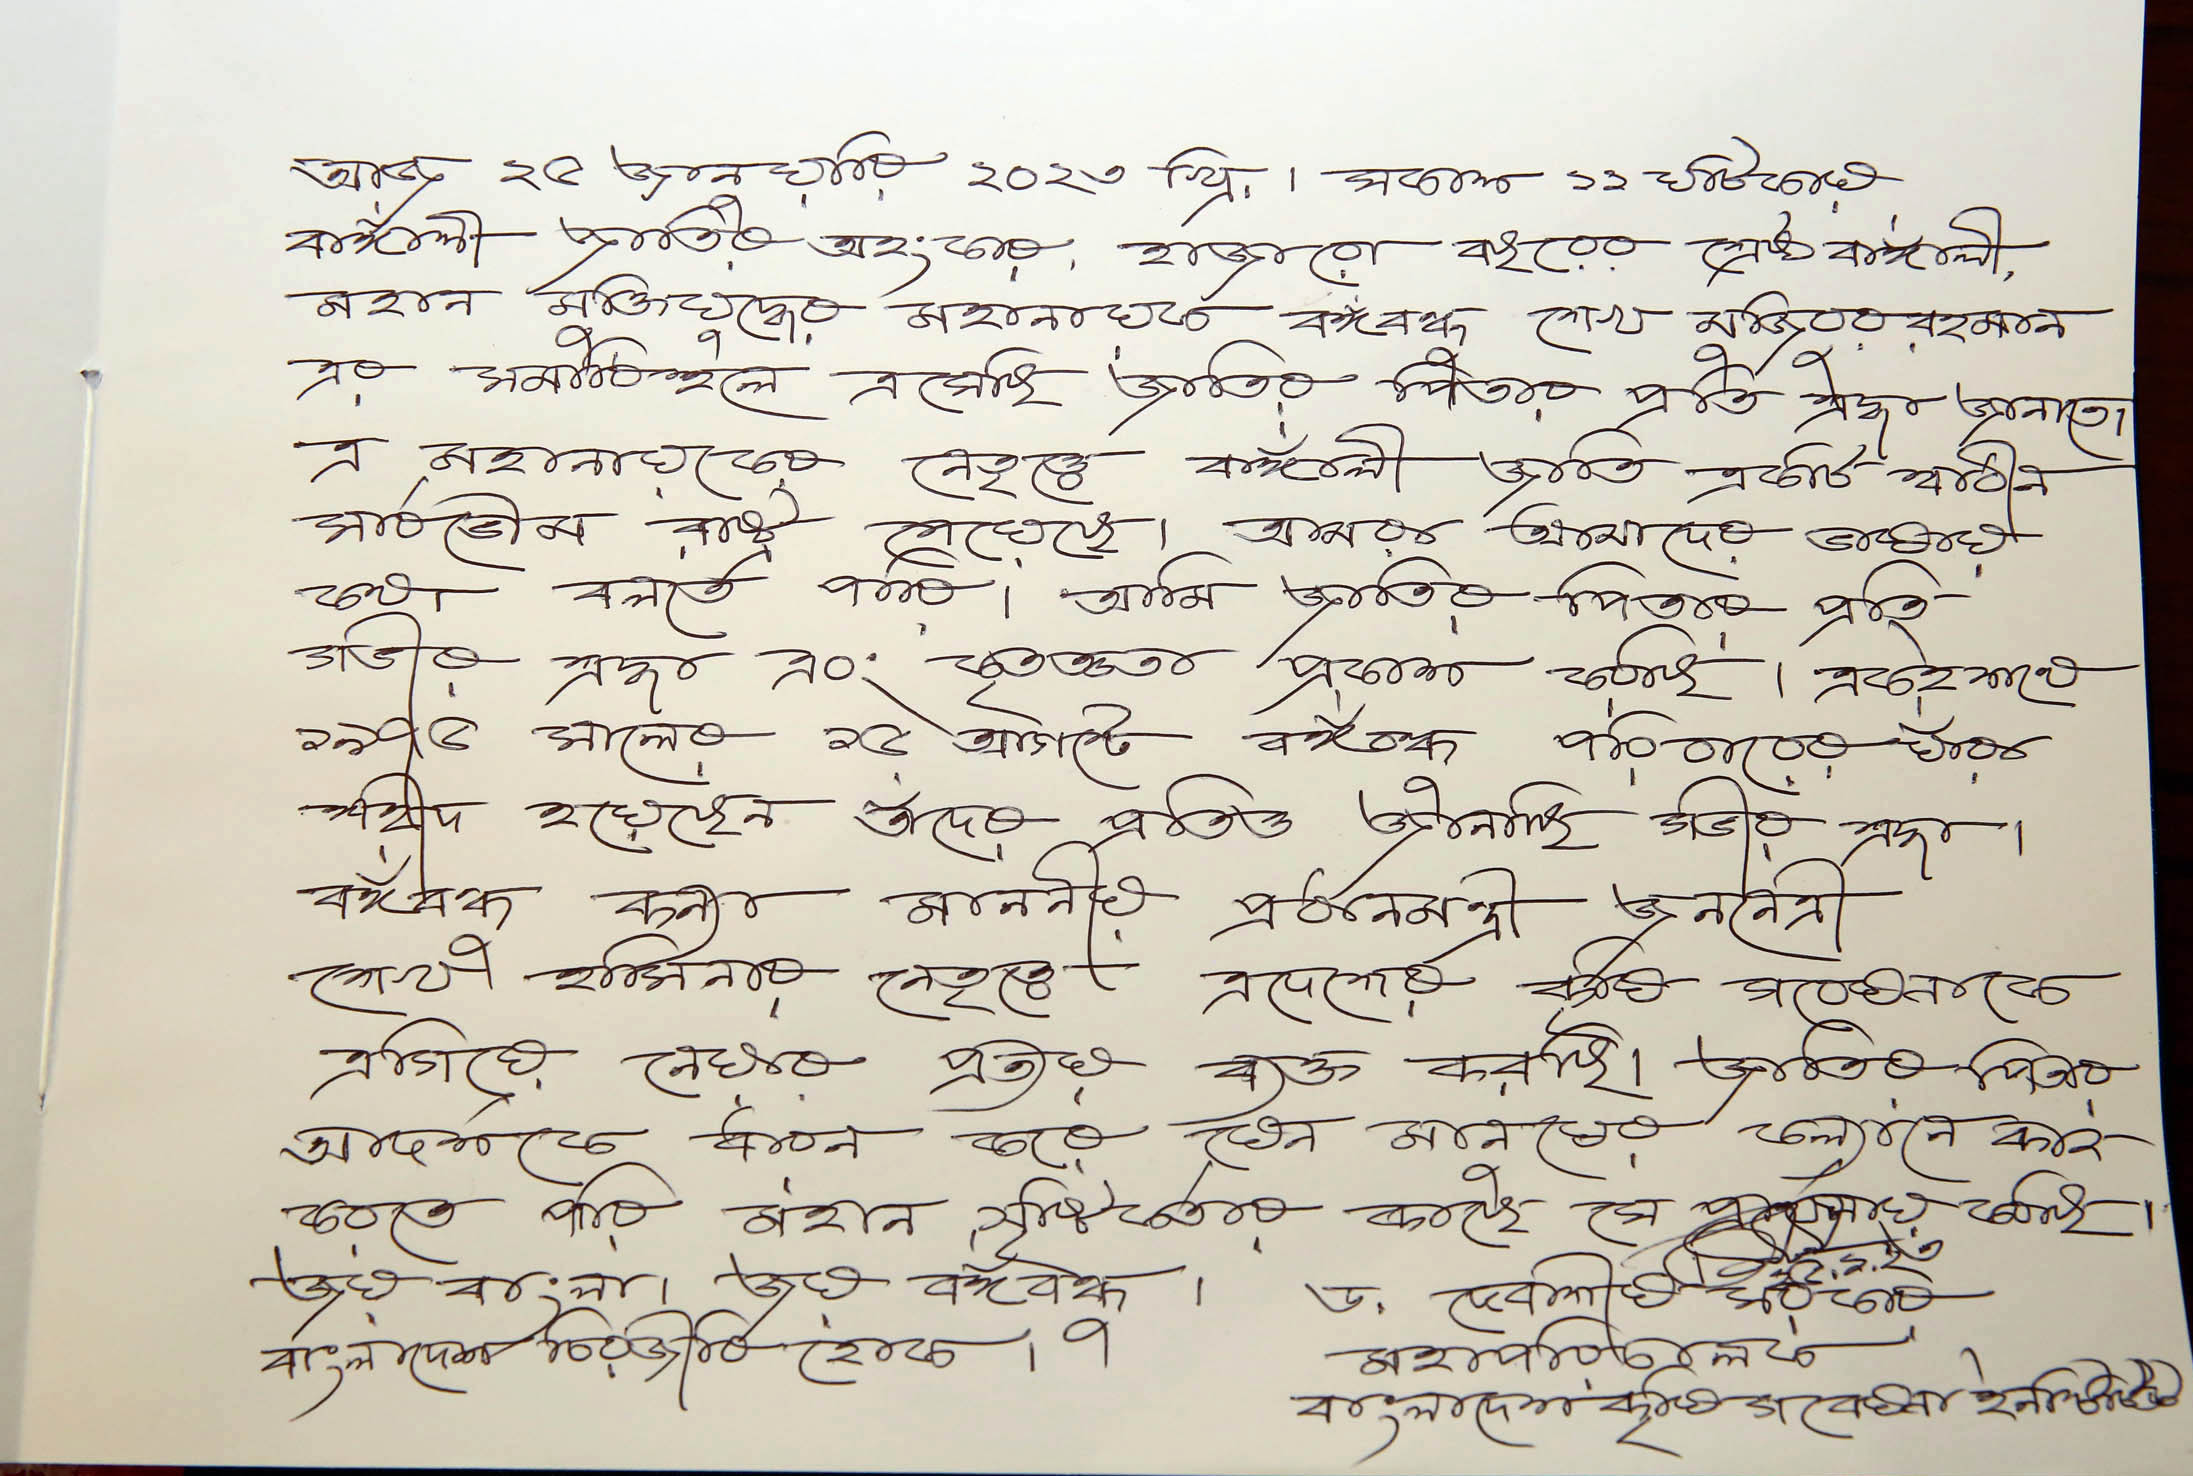 আজ ২৫ জানুয়ারি ২০২৩ খ্রি.। সকাল ১১ ঘটিকায়
বাঙ্গালী জাতির অহংকার, হাজারো বছরের শ্রেষ্ঠ বাঙ্গালী,
মহান মুক্তিযুদ্ধের মহানায়ক বঙ্গবন্ধু শেখ মুজিবুর রহমান
এর সমাধিস্থলে এসেছি জাতির পিতার প্রতি শ্রদ্ধা জানাতে।
এ মহানায়কের নেতৃত্বে বাঙ্গালী জাতি একটি স্বাধীন
সার্বভৌম রাষ্ট্র পেয়েছে। আমরা আমাদের ভাষায়
কথা বলতে পারি। আমি জাতির পিতার প্রতি
গভীর শ্রদ্ধা এবং কৃতজ্ঞতা প্রকাশ করছি। একইসাথে
১৯৭৫ সালের ১৫ আগস্টে বঙ্গবন্ধু পরিবারের যাঁরা
শহীদ হয়েছেন তাঁদের প্রতিও জানাচ্ছি গভীর শ্রদ্ধা।
বঙ্গবন্ধু কন্যা মাননীয় প্রধানমন্ত্রী জননেত্রী
শেখ হাসিনার নেতৃত্বে এদেশের কৃষি গবেষণাকে
এগিয়ে নেয়ার প্রত্যয় ব্যক্ত করছি। জাতির পিতার
আদর্শকে ধারন করে যেন মানুষের কল্যানে কাজ
করতে পারি মহান সৃষ্টিকর্তার কাছে সে প্রার্থনায় করছি।
জয় বাংলা। জয় বঙ্গবন্ধু।
বাংলাদেশ চিরজীবি হোক।
ড. দেবাশীষ সরকার
মহাপরিচালক
বাংলাদেশ কৃষি গবেষণা ইনস্টিটিউট